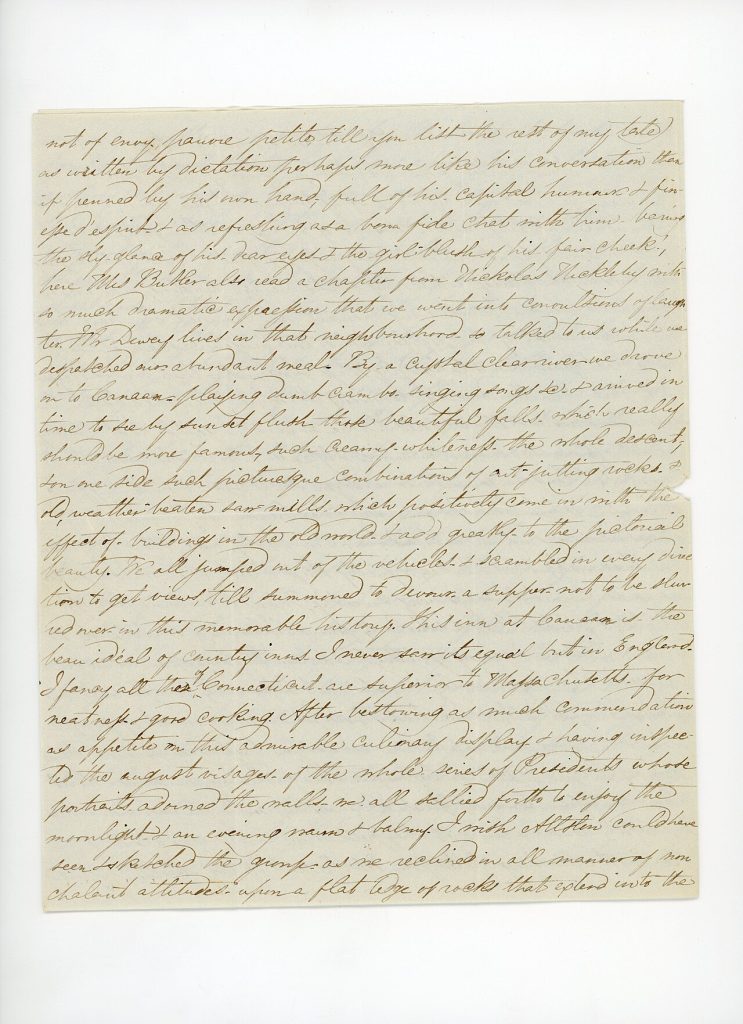 not of envy, pauvre petite, till you list the rest of my tale
as written by dictation perhaps more like his conversation than
if penned by his own hand, full of his capital humour & fin-
esse d'esprit & as refreshing as a bona fide chat with him
the sly glance of his dear eyes & the girl blush of his fair cheek!,
here Mrs Butler also read a chapter from Nickolas Nickleby with
so much dramatic expression that we went into convulsions of laugh
ter. Mr Dewey lives in that neighbourhood & talked to us while we
despatched our abundant meal. By a crystal clear river we drove
on to Canaan playing dumb crambo singing songs &c. & arrived in
time to see by sunset flush those beautiful falls which really
should be more famous, such creamy whiteness the whole descent,
& on one side such picturesque combinations of out-jutting rocks &
old weather beaten saw mills, which positively come in with the
effect of building in the old world & add greatly to the pictorial
beauty. We all jumped out of the vehicles & scrambled in every direc
tion to get views, till summoned to devour a supper not to be slur
red over in this memorable history. This inn at Canaan is the
beau idéal of country inns I never saw its equal but in England.
I fancy all the of Connecticut are superior to Massachusetts for
neatness & good cooking. After bestowing as much commendation
as appetite on this admirable culinary display & having inspec-
ted the august visages of the whole series of Presidents whose
portraits adorned the walls we all sallied forth to enjoy the
moonlight & an evening warm & balmy. I wish Allston could have
seen & sketched the group as we reclined in all manner of non
chalant attitudes upon a flat edge of rocks that extend into the